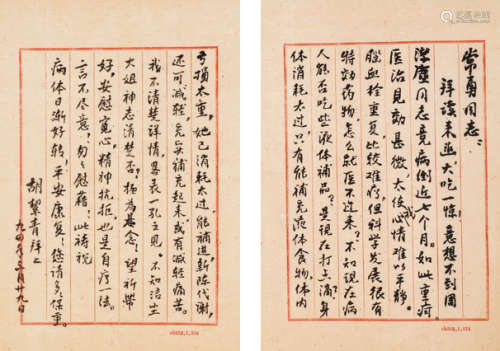 常勇同志：
拜读来函大吃一惊，意想不到国
同志竟病倒近七个月。如此重疴
医治见効甚微，太使我心情难以平静。
脑血栓重复，比较难疗，但科学发展很有
特効药物，怎么就医不过来，不知现在病
人能否吃些液体补品？是现在打点滴？身
体消耗太过，只有能补充液体食物，体内
亏损太重，她已消耗太过，能补进新陈代谢，
还可减轻。补充起来，或有减轻病苦。
我不清楚详情，一孔之见。不知治生
大姐神志清楚否？极为惦念！望祈带
好，安慰宽心，精神抗拒，也是自疗一法。
言不尽意，匆匆慰藉！此祷祝
病体日渐好转，平安康复！您请多多保重。
胡絜青拜上
九四年三月廿九日